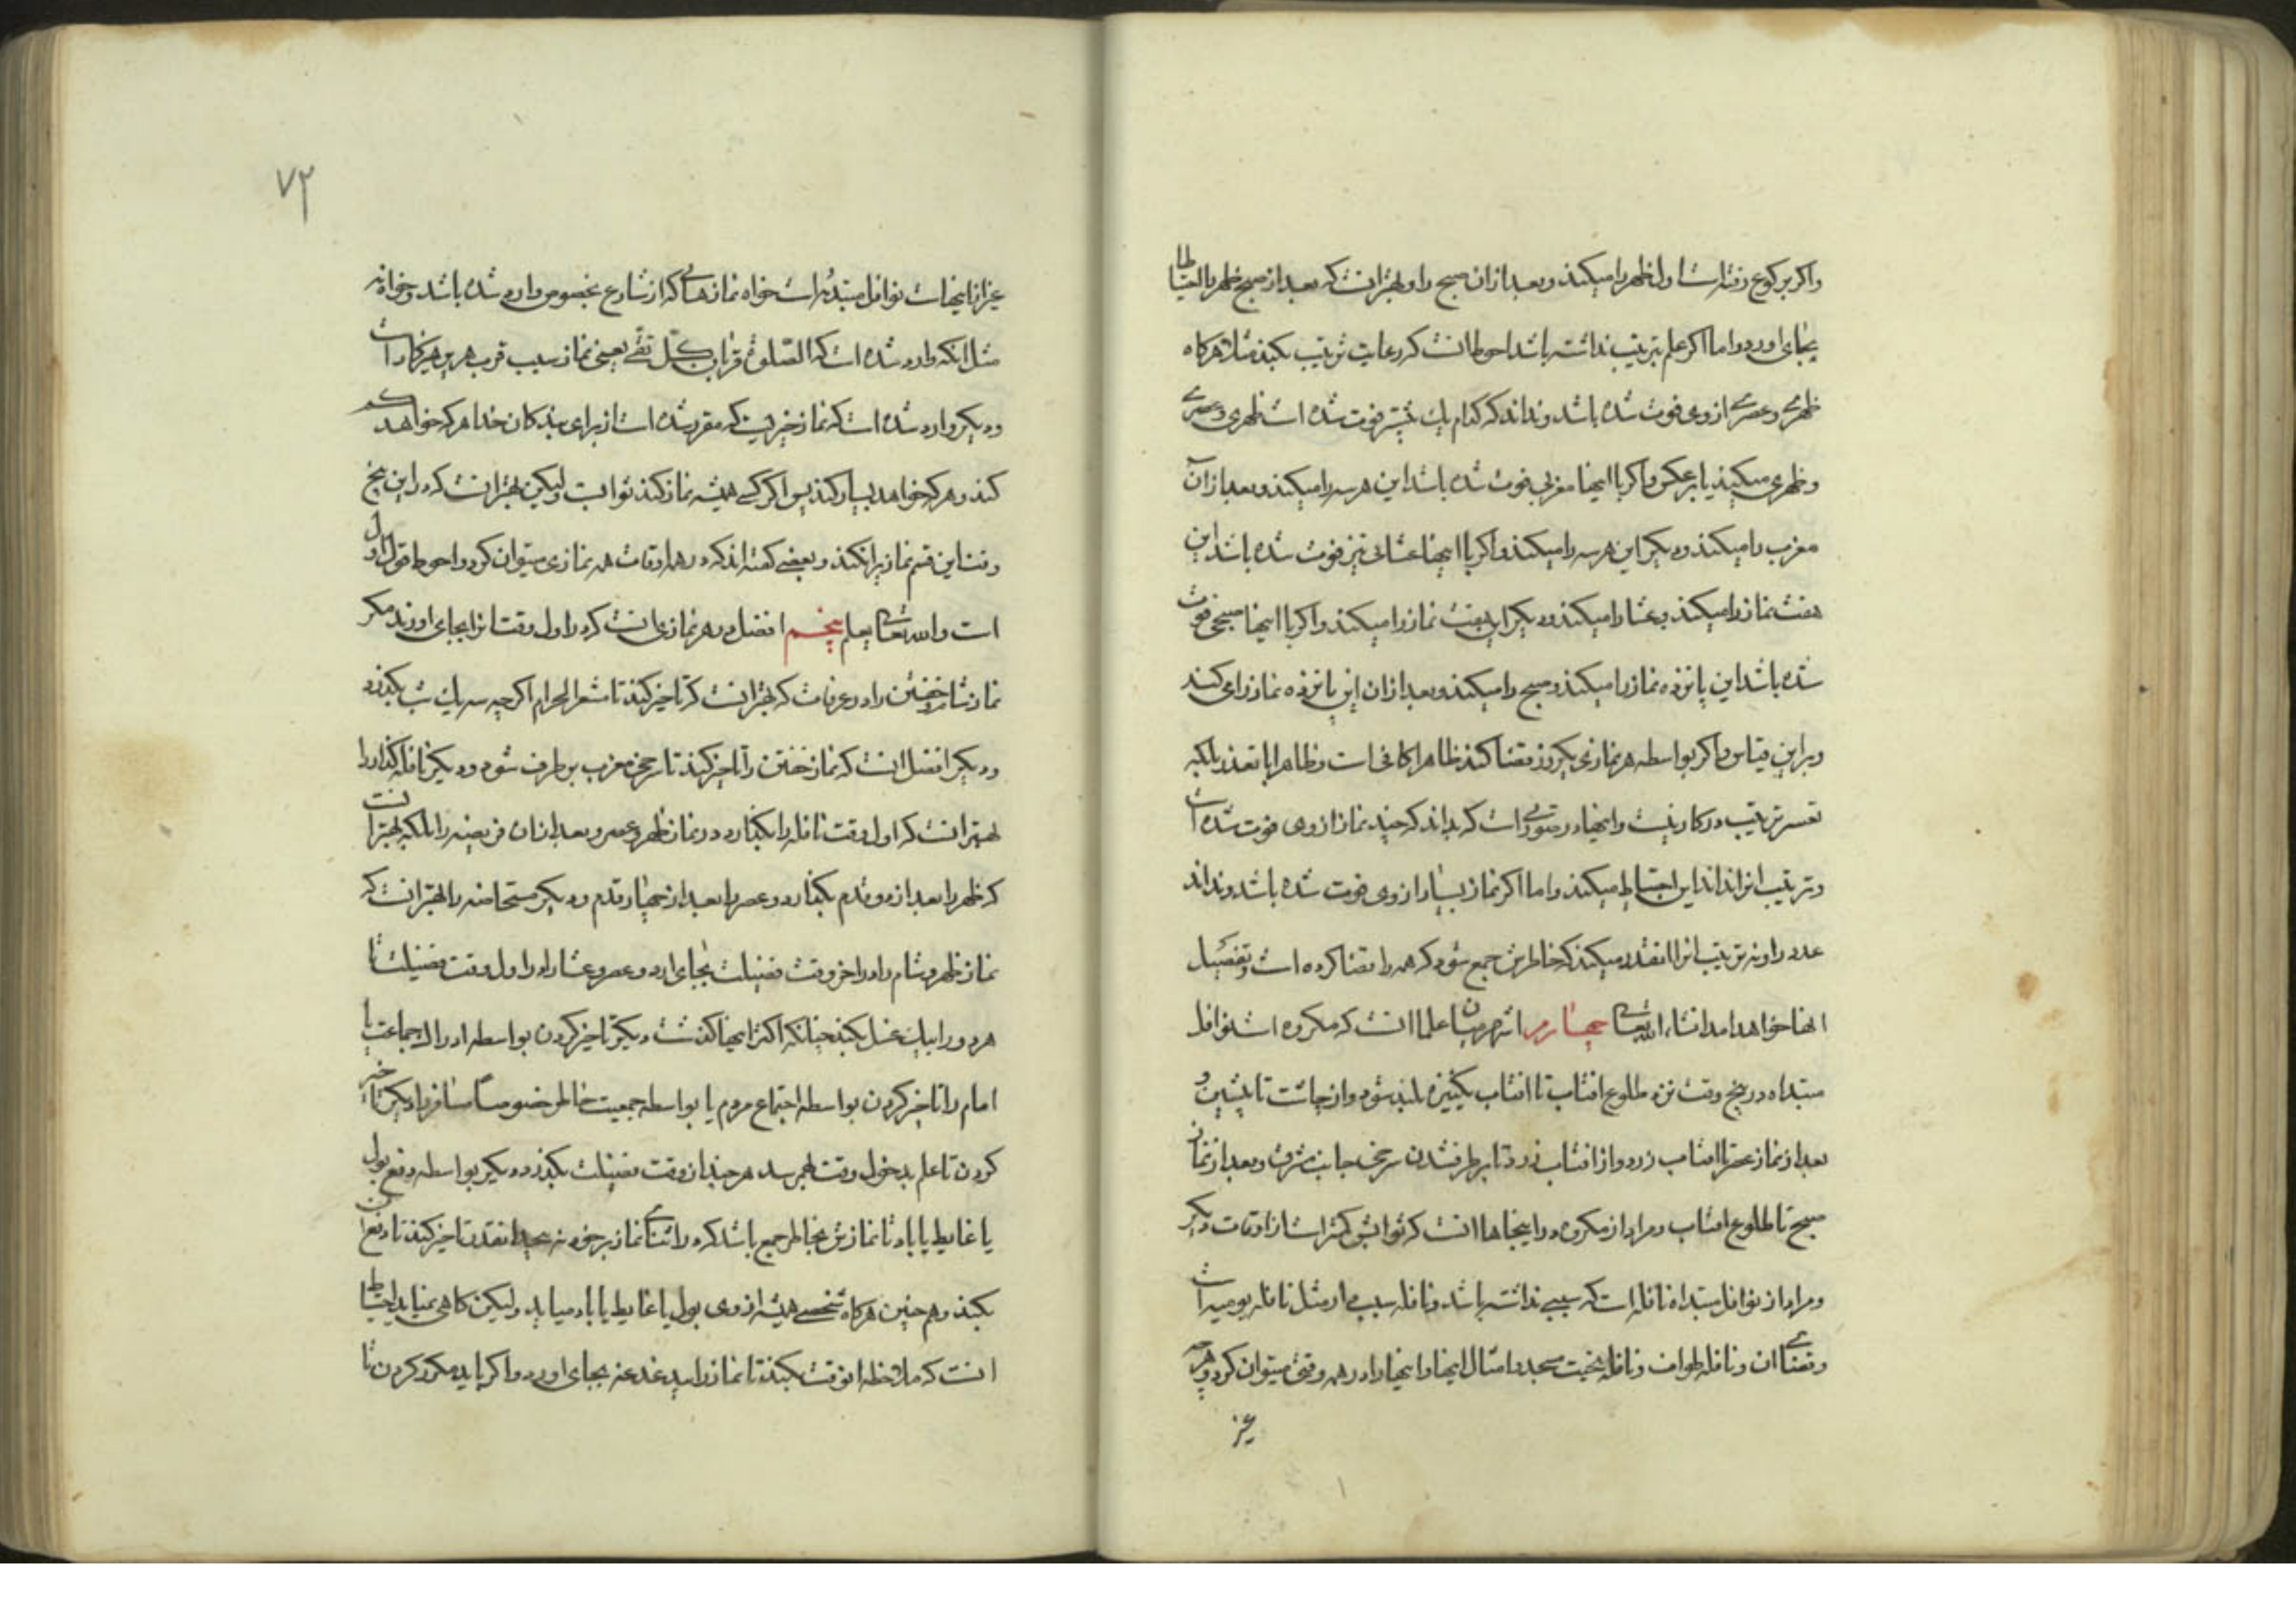 واکر برکوع رفته است اول ظهر را میکند و بعد ازان صبح را و بهتر انست که بعد از صبح ظهر را احتیاطا
بجای اورد و اما اکر علم بترتیب نداشته باشد احوط انست که رعایت ترتیب بکند مثلا هرکاه
ظهری و عصری از وی فوت شده باشد و نداند که کدام یک پیشتر فوت شده است ظهری و عصری
و ظهری میکند یا بر عکس و اکر با اینها مغربی فوت شده باشد این هر سه را میکند و بعد ازان
مغرب را میکند و دیکر این هر سه را میکند و اکر با اینها عشائی نیز فوت شده باشد این
هفت نماز را میکند و عشا را میکند و دیکر این هفت نماز را میکند و اکر با اینها صبحی فوت
شده باشد این پانزده نماز را میکند و صبح را میکند و بعد ازان این پانزده نماز را می کند
و براین قیاس و اکر بواسطه هر نمازی یکروز قضا کند ظاهرا کافی است و ظاهرا با تعذر بلکه
تعسر ترتیب در کار نیست و اینها در صورتی است که بداند که چند نماز از وی فوت شده است
و ترتیب انرا نداند این احتیاط میکند و اما اکر نماز بسیار از وی فوت شده باشد و نداند
عدد را و نه ترتیب انرا انقدر میکند که خاطرش جمع شود که همه را قضا کرده است و تفصیل
اینها خواهد امد انشاء الله تعالی چهارم اشهر میان علما انست که مکروه است نوافل
مبتداه در پنج وقت نزد طلوع افتاب تا افتاب یکنیزه بلند شود و از چاشت تا پیشین و
بعد از نماز عصر تا افتاب زرد و از افتاب زرد تا برطرف شدن سرخی جانب مشرق و بعد از نماز
صبح تا طلوع افتاب و مراد از مکروه در اینجاها انست که ثوابش کمتر است از اوقات دیکر
و مراد از نوافل مبتداه نافله است که سببی نداشته باشد و نافله سبب دار مثل نافله یومیه است
و قضای ان و نافله طواف و نافله تحیت مسجد و امثال اینها و اینها را در همه وقتی میتوان کرد و هرچه
غیر
۷۳
غیر از اینهاست نوافل مبتدئه است خواه نمازهائی که از شارع بخصوص وارد شده باشد و خواه نه
مثل انکه وارد شده است که الصّلوة قربان کلّ تقی یعنی نماز سبب قرب هر پرهیزکار است
و دیکر وارد شده است که نماز خیریست که مقرر شده است از برای بندکان خدا هر که خواهد کم
کند و هر که خواهد بسیار کند پس اکر کسی همیشه نماز کند ثوابست و لیکن بهتر انست که در این پنج
وقت این قسم نماز را نکند و بعضی کفته اند که در همه اوقات همه نمازی میتوان کرد و احوط قول اول
است والله تعالی یعلم پنجم افضل در هر نمازی انست که در اول وقت انرا بجای اورند مکر
نماز شام و خفتن را در عرفات که بهتر انست که تاخیر کنند تا مشعر الحرام اکرچه سه یک شب بکذرد
و دیکر افضل انست که نماز خفتن را تاخیر کنند تا سرخی مغرب بر طرف شود و دیکر نافله کذار را
بهتر انست که اول وقت نافله را بکذارد در نماز ظهر و عصر و بعد ازان فریضه را بلکه بهتر انست
که ظهر را بعد از دو قدم بکذارد و عصر را بعد از چهار قدم و دیکر مستحاضه را بهتر انست که
نماز ظهر و شام را در اخر وقت فضیلت بجای ارد و عصر و عشا را در اول وقت فضیلت تا
هر دو را بیک غسل بکند چنانکه اکثر اینها کذشت دیکر تاخیر کردن بواسطه ادراک جماعت یا
امام را تاخیر کردن بواسطه اجتماع مردم یا بواسطه جمعیت خاطر خصوصاً مسافر را دیکر تاخیر
کردن تا علم بدخول وقت بهم رسد هر چند از وقت فضیلت بکذرد و دیکر بواسطه دفع بول
یا غایط یا باد تا نمازش بخاطر جمع باشد که در اثنای نماز بر خود نه پیچد انقدر تاخیر کنند تا دفع ان
بکند و هم چنین هرکاه شخصی همیشه از وی بول یا غایط یا باد میاید ولیکن کاهی نمیاید احتیاط
انست که ملاحظه انوقت بکند تا نماز را بیدغدغه بجای اورد و اکر باید مکرر کردن تا